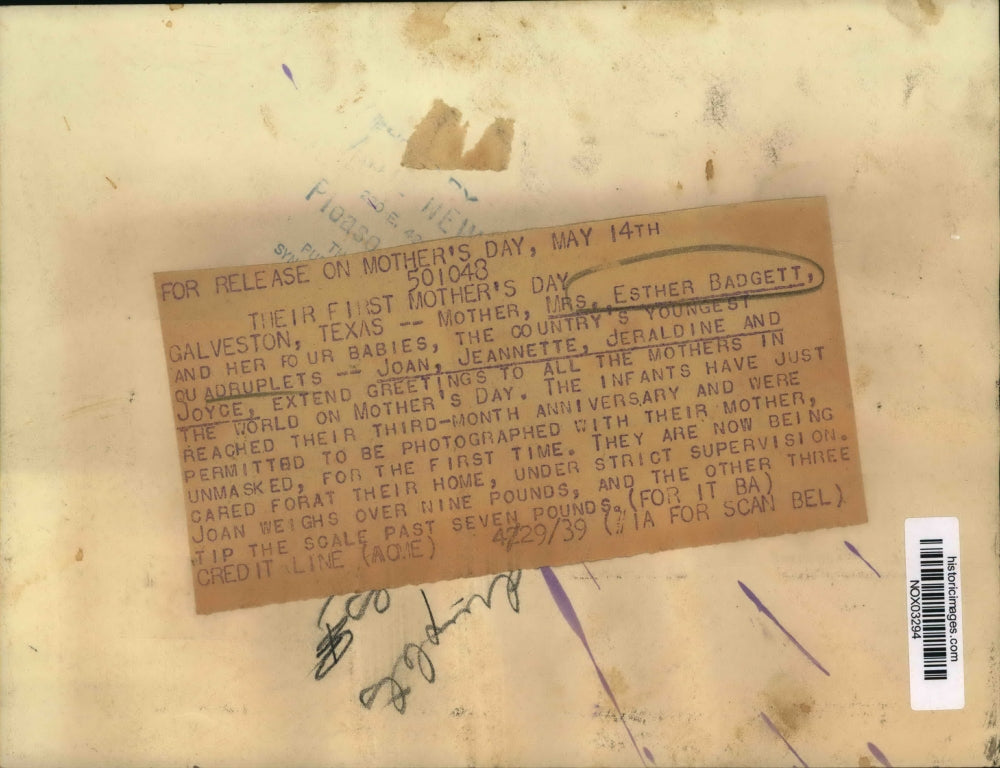 Please
FOR RELEASE ON MOTHER'S DAY, MAY 14TH
501048
THEIR FIRST MOTHER'S DAY
GALVESTON, TEXAS -- MOTHER, MRS. ESTHER BADGETT,
AND HER FOUR BABIES, THE COUNTRY'S YOUNGEST
QUADRUPLETS -- JOAN, JEANNETTE, JERALDINE AND
JOYCE, EXTEND GREETINGS TO ALL THE MOTHERS IN
THE WORLD ON MOTHER'S DAY. THE INFANTS HAVE JUST
REACHED THEIR THIRD-MONTH ANNIVERSARY AND WERE
PERMITTED TO BE PHOTOGRAPHED WITH THEIR MOTHER,
UNMASKED, FOR THE FIRST TIME. THEY ARE NOW BEING
CARED FORAT THEIR HOME, UNDER STRICT SUPERVISION.
JOAN WEIGHS OVER NINE POUNDS, AND THE OTHER THREE
TIP THE SCALE PAST SEVEN POUNDS. (FOR IT BA)
CREDIT LINE (ACME) 4/29/39 (VIA FOR SCAN BEL)
historicimages.com
NOX03294